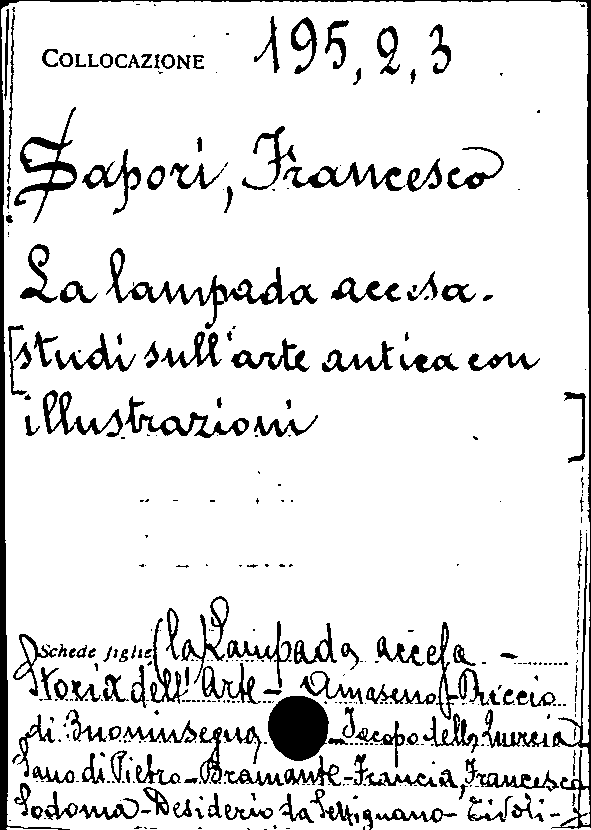 COLLOCAZIONE 195, 2, 3
Sapori, Francesco
La lampada accesa.
[studi sull'arte antica con
illustrazioni]
Schede figlie (la) Lampada accesa -
Storia dell'Arte - Amaseno -
di Buoninsegna - Jacopo della Quercia
Sano di Pietro - Bramante - Francia, Francesco
Sodoma - Desiderio da Settignano - Tivoli -